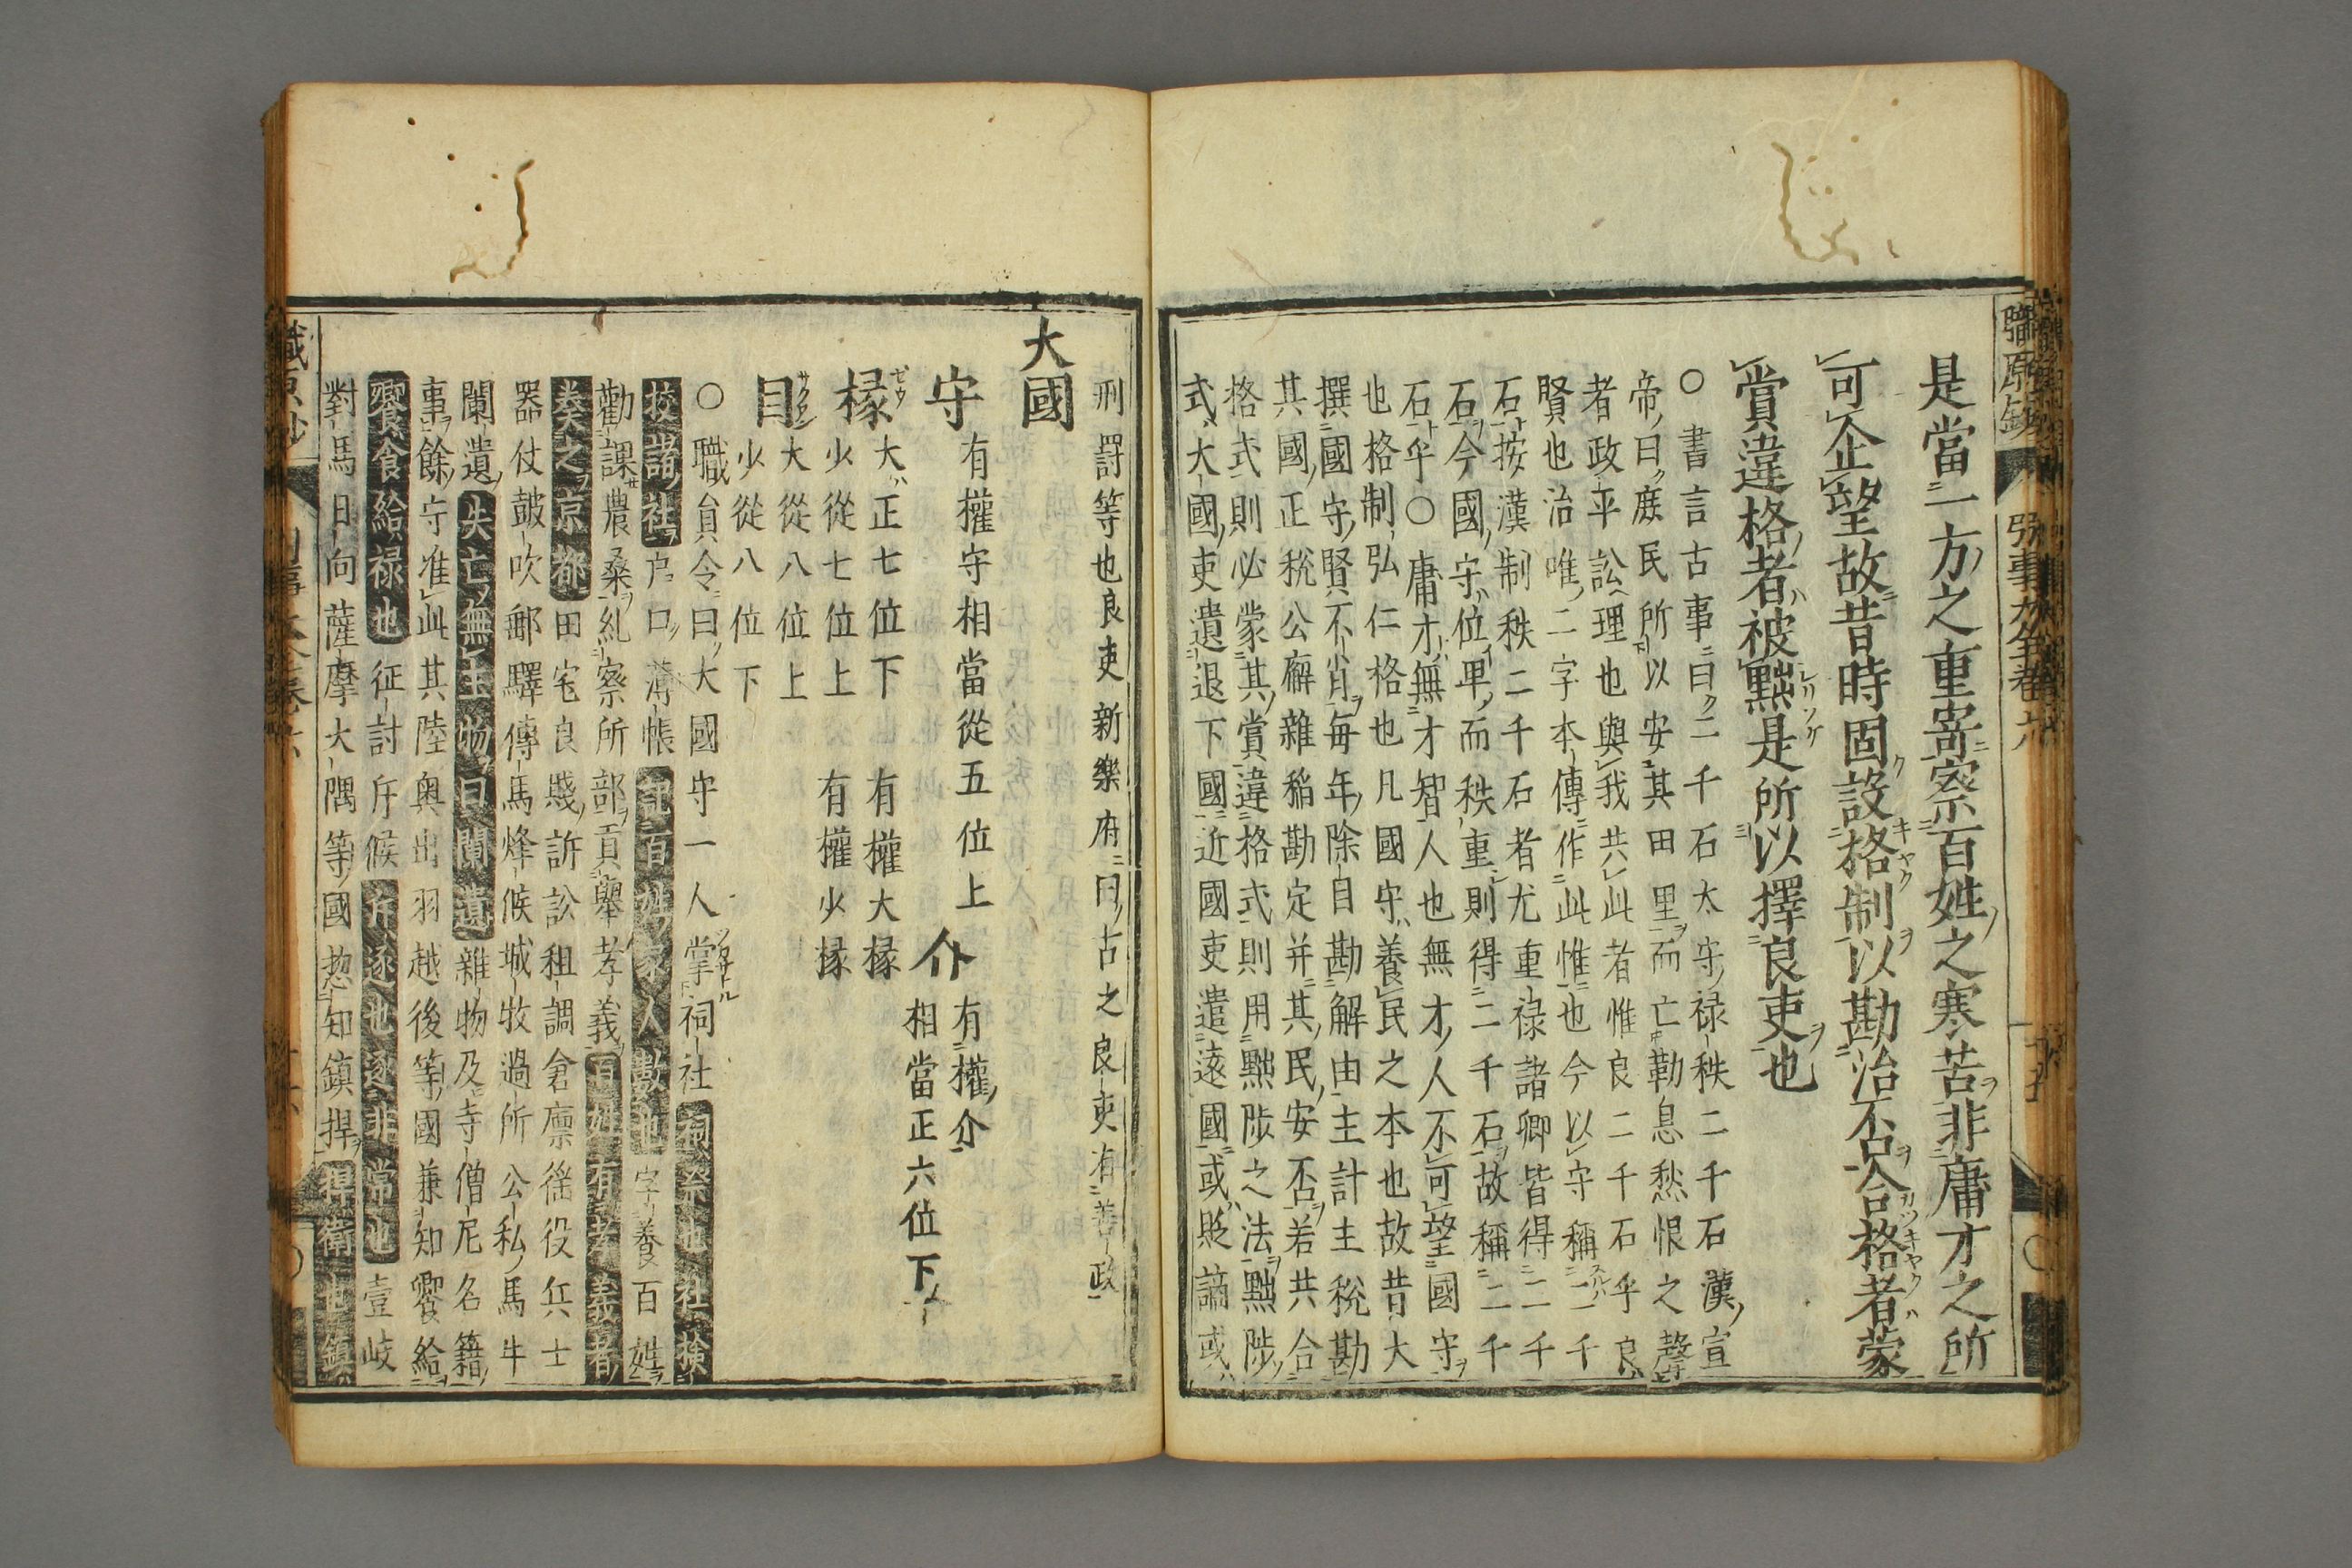 是當一方之重寄察百姓之寒苦非庸才之所
可企望故昔時固設格制以勘治不合格者蒙
賞違格者被黜是所以擇良吏也
○書言古事曰二千石太守禄秩二千石漢宣
帝曰庶民所以安其田里而亡勤息愁恨之聲
者政平訟理也與我共此者惟良二千石乎良
賢也治唯二字本傳作此惟也今以守稱二千
石按漢制秩二千石者尤重禄諸卿皆得二千
石今國守位卑而秩重則得二千石故稱二千
石乎○庸才無才智人也無才人不可望國守
也格制弘仁格也凡國守養民之本也故昔大
撰國守賢不肖毎年除自勘解由主計主税勘
其國正税公廨雜稲勘定并其民安否若共合
格式則必蒙其賞違格式則用黜陟之法黜陟
式大國吏遺退下國近國吏遣遠國或貶謫或
刑罸等也良吏新樂府曰古之良吏有善政
大國
守 有權守相當從五位上
介 有權介 相當正六位下
掾 大正七位下 有權大掾
少從七位上 有權少掾
目 大從八位上
少從八位下
○職員令曰大國守一人掌祠社祠祭也社檢
校諸社戸口薄帳記百姓家人數也字養百姓
勸課農桑糺察所部貢舉孝義百姓有孝義者
奏之京都田宅良賤訴訟租調倉廩徭役兵士
器仗皷吹郵驛傳馬烽候城牧過所公私馬牛
闌遺失亡無主物曰闌遺雜物及寺僧尼名籍
事餘守准此其陸奥出羽越後等國兼知饗給
饗食給禄也征討斥候斥逐也逐非常也壹岐
對馬日向薩摩大隅等國惣知鎮捍捍衛也鎮